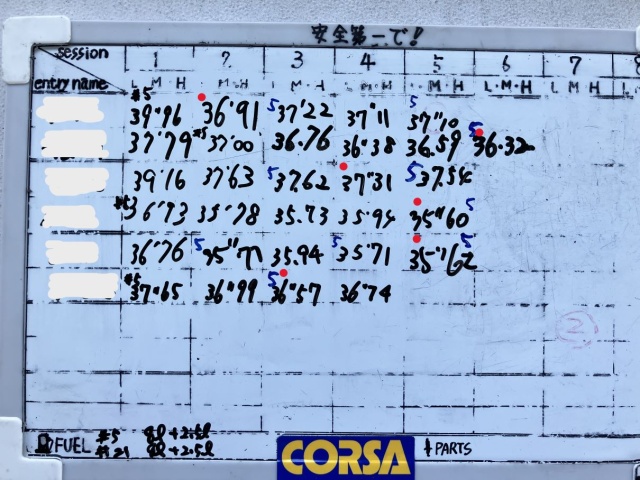 安全第一で!
session 1 2 3 4 5 6 7 8
entry name L·M·H L·M·H L·M·H L·M·H L·M·H L·M·H L·M·H
#5 39"96 36'91 5 37'22 37"11 5 37"10
37'79 #5 37'00 36.76 36"38 36.59 5 36.32
39'16 37'63 5 37.62 37"31 5 37.54
#3 36'93 35"78 35.73 35"94 35"60 5
36"76 5 35"71 35.94 5 35"71 35"62 5
#5 37"65 36"99 5 36"57 36"74
2
FUEL #5 8l+2.5l
#21 8l+2.5l
CORSA
PARTS